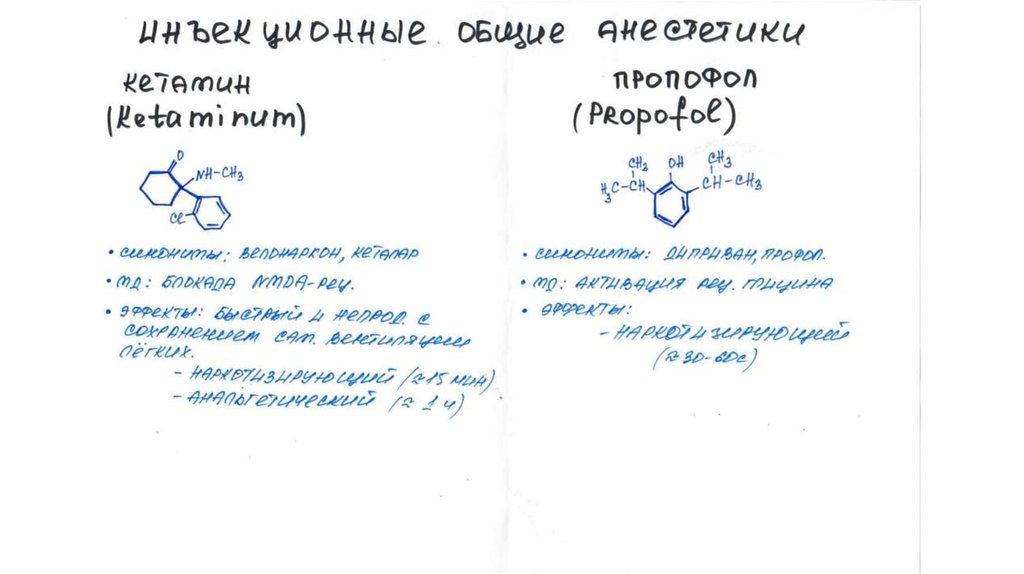 ИНЪЕКЦИОННЫЕ ОБЩИЕ АНЕСТЕТИКИ
КЕТАМИН
(Ketaminum)
O
NH-CH3
Cl
• СИНОНИМЫ: ВЕЛОНАРКОН, КЕТАЛАР
• МД: БЛОКАДА NMDA-РЕЦ.
• ЭФФЕКТЫ: БЫСТРЫЙ И НЕПРОД. С
СОХРАНЕНИЕМ САМ. ВЕНТИЛЯЦИИ
ЛЁГКИХ.
- НАРКОТИЗИРУЮЩИЙ (≈15 МИН)
- АНАЛЬГЕТИЧЕСКИЙ (≈ 1 Ч)
ПРОПОФОЛ
(Propofol)
CH3 OH CH3
H3C-CH CH-CH3
• СИНОНИМЫ: ДИПРИВАН, ПРОФОЛ.
• МД: АКТИВАЦИЯ РЕЦ. ГЛИЦИНА
• ЭФФЕКТЫ:
- НАРКОТИЗИРУЮЩИЙ
(≈30-60с)